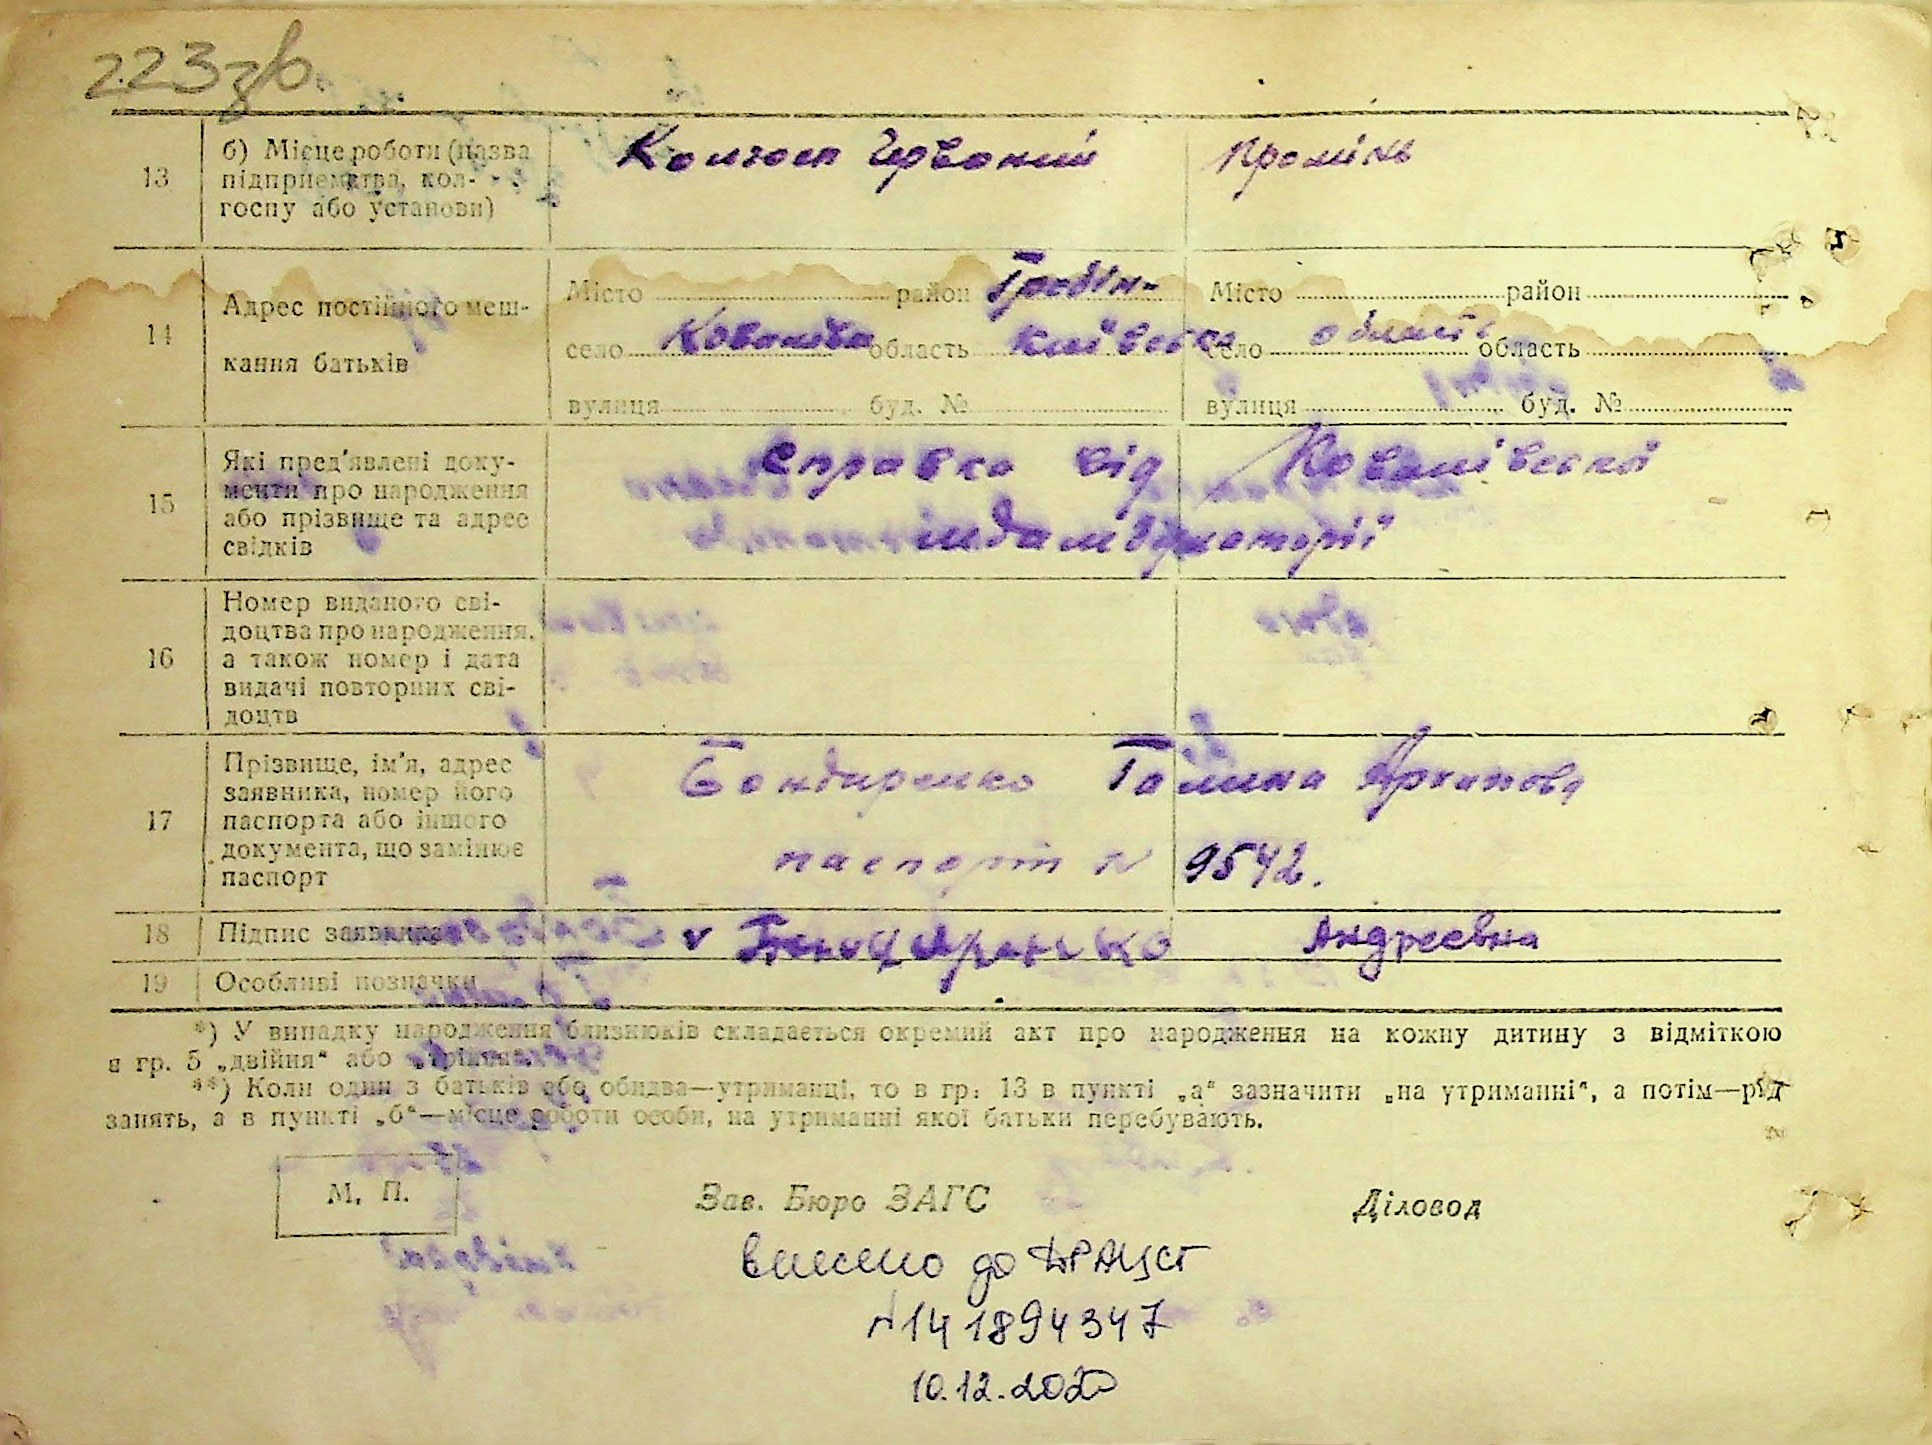 223зв.
13 б) Місце роботи (назва підприємства, колгоспу або установи) Колгосп Червоний Промінь
14 Адрес постійного мешкання батьків
Місто район Гребін- Місто район
село Ковалівка область Київська село область область
вулиця буд. № вулиця буд. №
15 Які пред'явлені документи про народження або прізвище та адрес свідків
Справка від Ковалівської
амбамбулаторії
16 Номер виданого свідоцтва про народження, а також номер і дата видачі повторних свідоцтв
17 Прізвище, ім'я, адрес заявника, номер його паспорта або іншого документа, що замінює паспорт
Бондаренко Галина
паспорт № 9542.
18 Підпис заявника v Бондаренко Андреевна
19 Особливі позначки
*) У випадку народження близнюків складається окремий акт про народження на кожну дитину з відміткою
в гр. 5 „двійня“ або „трійня“.
**) Коли один з батьків або обидва—утриманці, то в гр. 13 в пункті „а“ зазначити „на утриманні“, а потім—рід
занять, а в пункті „б“—місце роботи особи, на утриманні якої батьки перебувають.
М. П. Зав. Бюро ЗАГС Діловод
Внесено до ДРАЦСГ
№141894347
10.12.2020